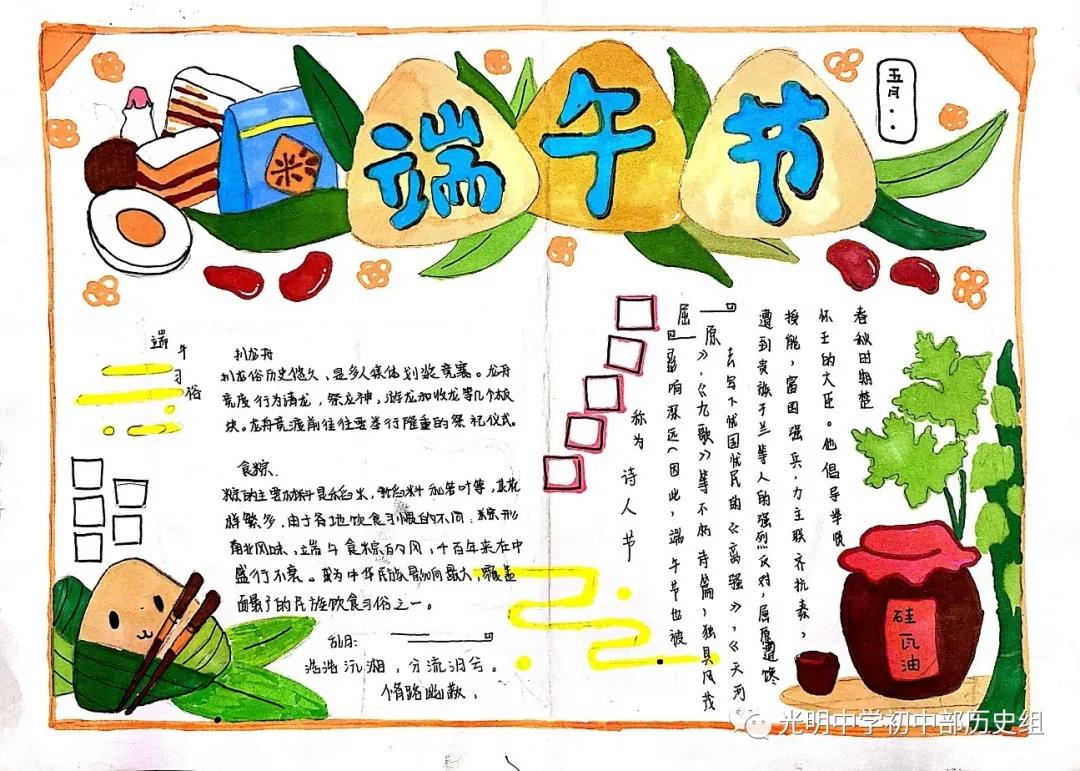 端午节
五月
米
端午习俗
扒龙舟
扒龙俗历史悠久，是多人集体划桨竞赛。龙舟
竞度行为请龙，祭龙神，游龙和收龙等几个板
块。龙舟竞渡前往往要举行隆重的祭祀仪式。
食粽.
粽的主要材料是稻米，
样繁多，由于各地饮食习惯的不同，粽形
南北风味，端午食粽的风，千百年来在中
盛行不衰。
面最广的民族饮食习俗之一。
乱曰：
浩浩沅湘，分流汨兮。
脩路幽蔽，
春秋时期楚
怀王的大臣。他倡导举贤
授能，富国强兵，力主联齐抗秦，
遭到贵族子兰等人的强烈反对，屈原遭馋
去写下忧国忧民的《离骚》，《天问
》，《九歌》等不朽诗篇，独具风茂
影响深远（因此，端午节也被
称为
诗人节
屈原
硅瓦油
光明中学初中部历史组